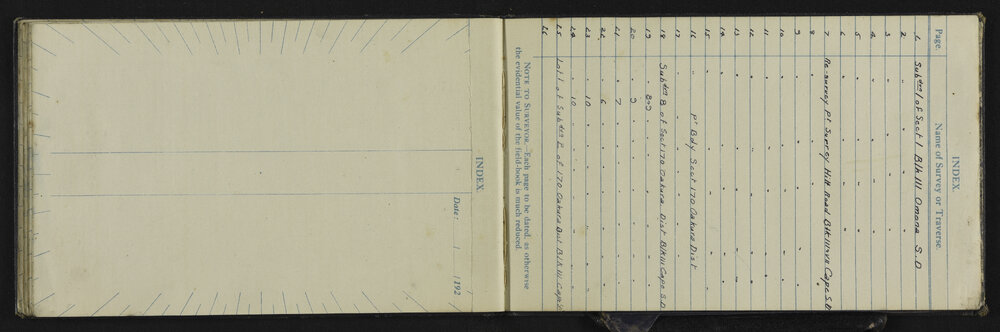 INDEX.
Page. Name of Survey or Traverse.
1. Subdn 1 of Sect 1 Blk III Omona S.D
2 "
3
4
5
6
7 Re-survey Pt Surrey Hill Road Blk III Cape S.D
8
9
10
11
12
13
14
15
16 " Pt Bdy Sect 170 Oakura Dist
17
18 Subdn B of Sect 170 Oakura Dist Blk III Cape S.D
19
20 9
21 7
22 6
23 10
24 10
25 Lot 1 of Subdn B of 170 Oakura Dist Blk III Cape
26
NOTE TO SURVEYOR.—Each page to be dated, as otherwise
the evidential value of the field-book is much reduced.
INDEX.
Date: / /192